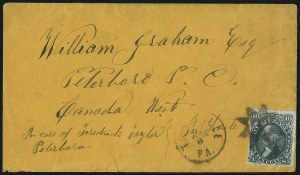 William Graham Esq
Peterboro P. C.
Canada West
In care of Fredrick Taylor
Peterboro
PA.